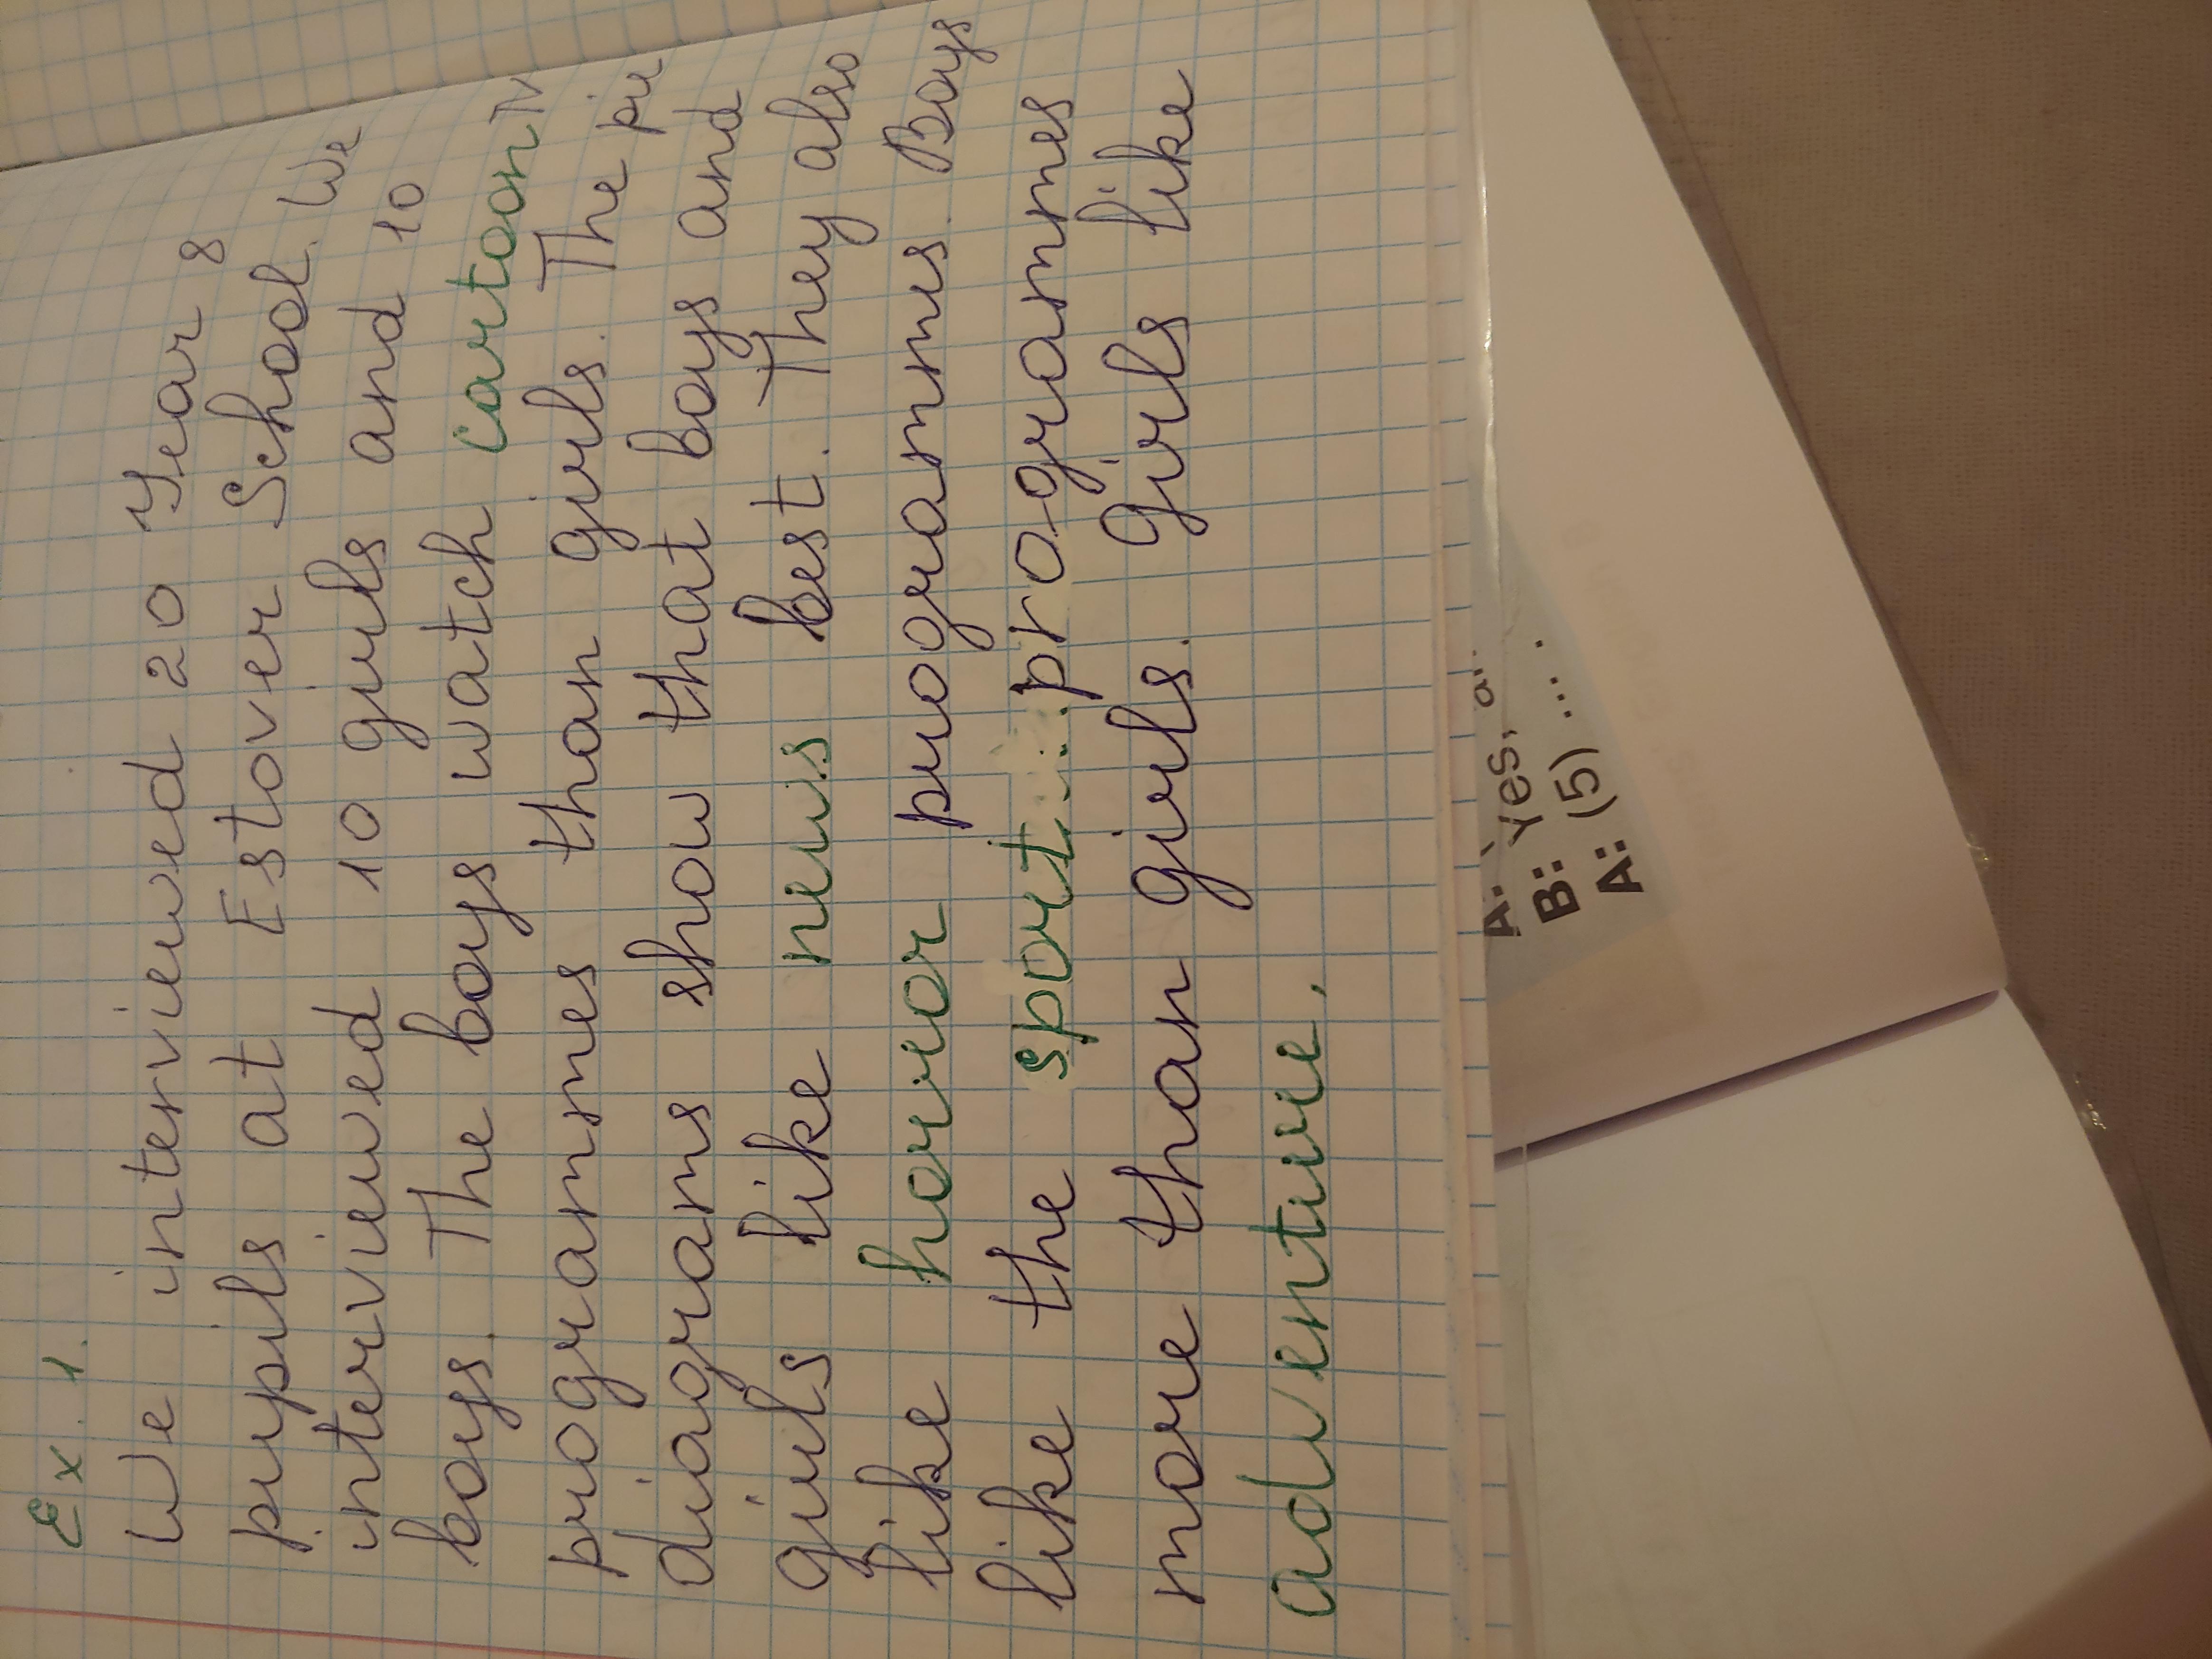 Ex. 1.
We interviewed 20 Year 8
pupils at Estover School. We
interviewed 10 girls and 10
boys. The boys watch cartoon TV
programmes than girls. The pie
diagrams show that boys and
girls like news best. They also
like horror programmes. Boys
like the sport programmes
more than girls. Girls like
adventure.
A: Yes, a..
B: (5) ... .
A: